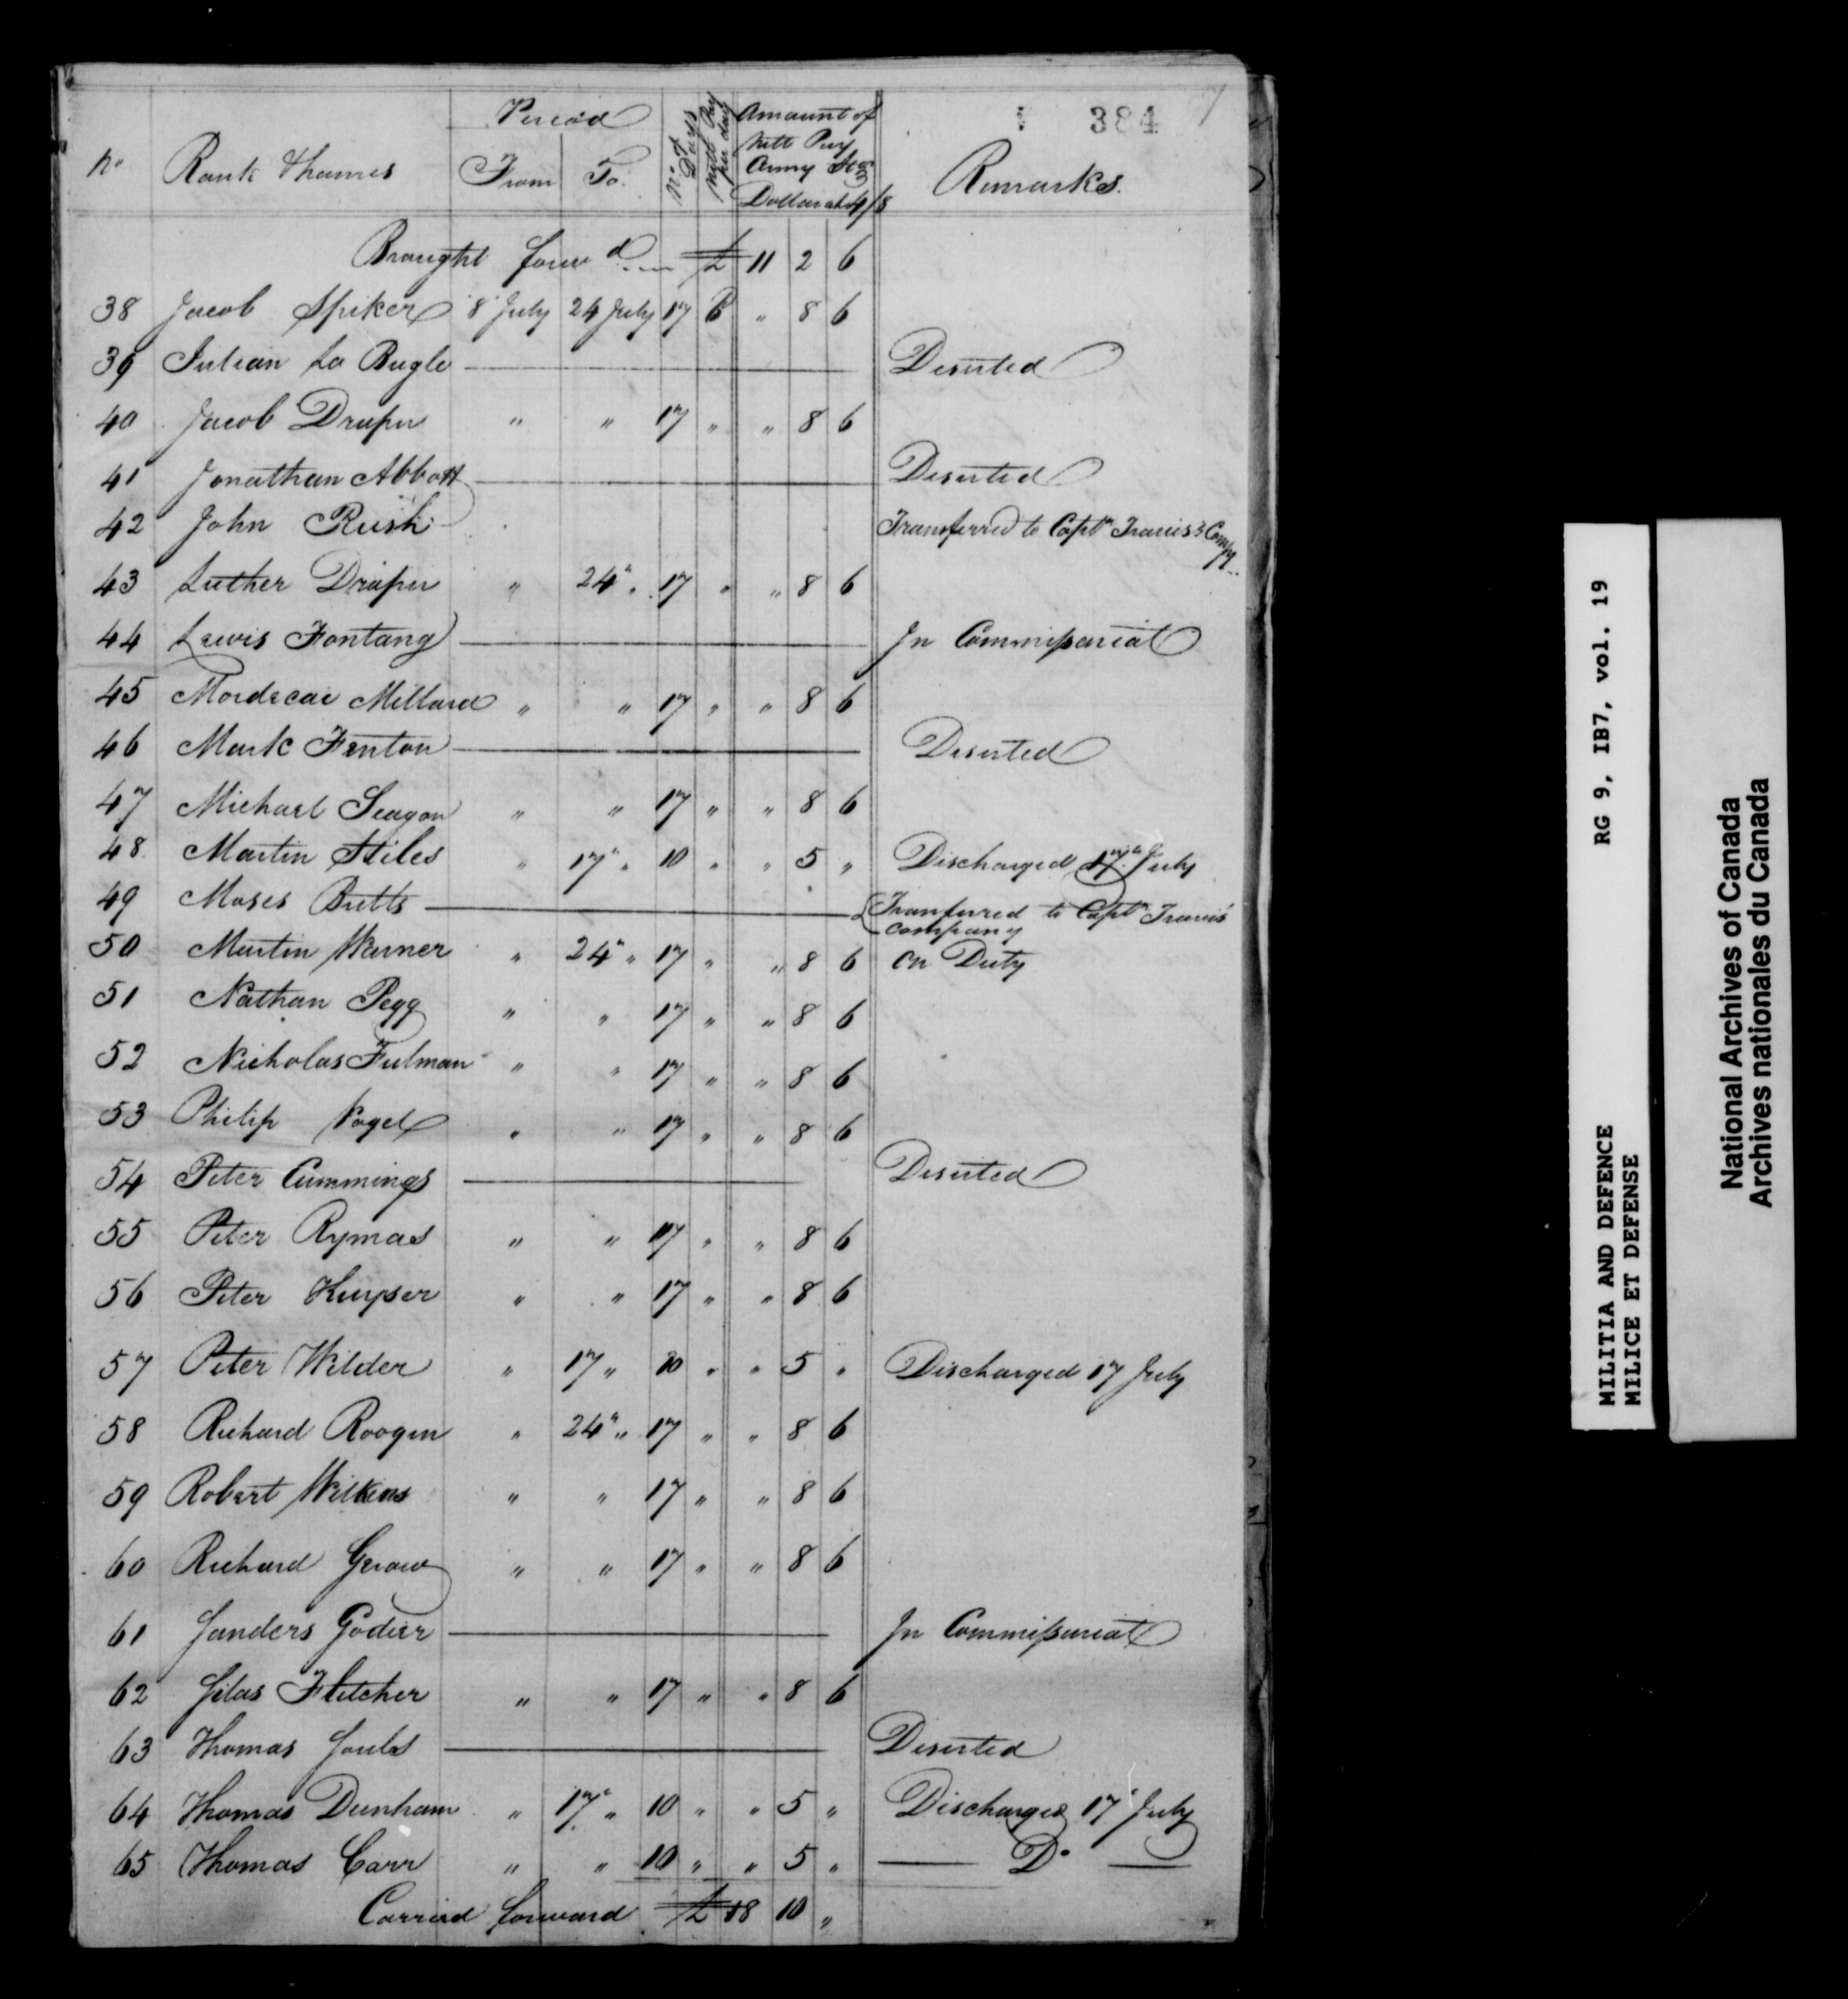 384
No Rank & Names Period From To No of Days Nett Pay per day Amount of Nett Pay Army Stg Dollar at 4/8 Remarks.
Brought forwd £ 11 2 6
38 Jacob Spiker 8 July 24 July 17 6 " 8 6
39 Julian La Bugle Deserted
40 Jacob Draper " " 17 " " 8 6
41 Jonathan Abbott Deserted
42 John Rush Transferred to Captn Travis's Compy
43 Luther Draper " 24 " 17 " " 8 6
44 Lewis Fontang In Commissariat
45 Mordecai Millard " " 17 " " 8 6
46 Mark Fenton Deserted
47 Michael Seagon " " 17 " " 8 6
48 Martin Stiles " 17 " 10 " " 5 " Discharged 17th July
49 Moses Butts Tranferred to Captn Travis' company
50 Martin Warner " 24 " 17 " " 8 6 On Duty
51 Nathan Pegg " " 17 " " 8 6
52 Nicholas Fulman " " 17 " " 8 6
53 Philip Vogel " " 17 " " 8 6
54 Peter Cummings Deserted
55 Peter Rymas " " 17 " " 8 6
56 Peter Huyser " " 17 " " 8 6
57 Peter Wilder " 17 " 10 " " 5 " Discharged 17 July
58 Richard Roogen " 24 " 17 " " 8 6
59 Robert Wilkins " " 17 " " 8 6
60 Richard Gerow " " 17 " " 8 6
61 Sanders Godier In Commissariat
62 Silas Fletcher " " 17 " " 8 6
63 Thomas Soules Deserted
64 Thomas Dunham " 17 " 10 " " 5 " Discharged 17 July
65 Thomas Carr " " 10 " " 5 " Do
Carried forward £ 18 10 "
MILITIA AND DEFENCE RG 9, IB7, vol. 19
MILICE ET DEFENSE
National Archives of Canada
Archives nationales du Canada